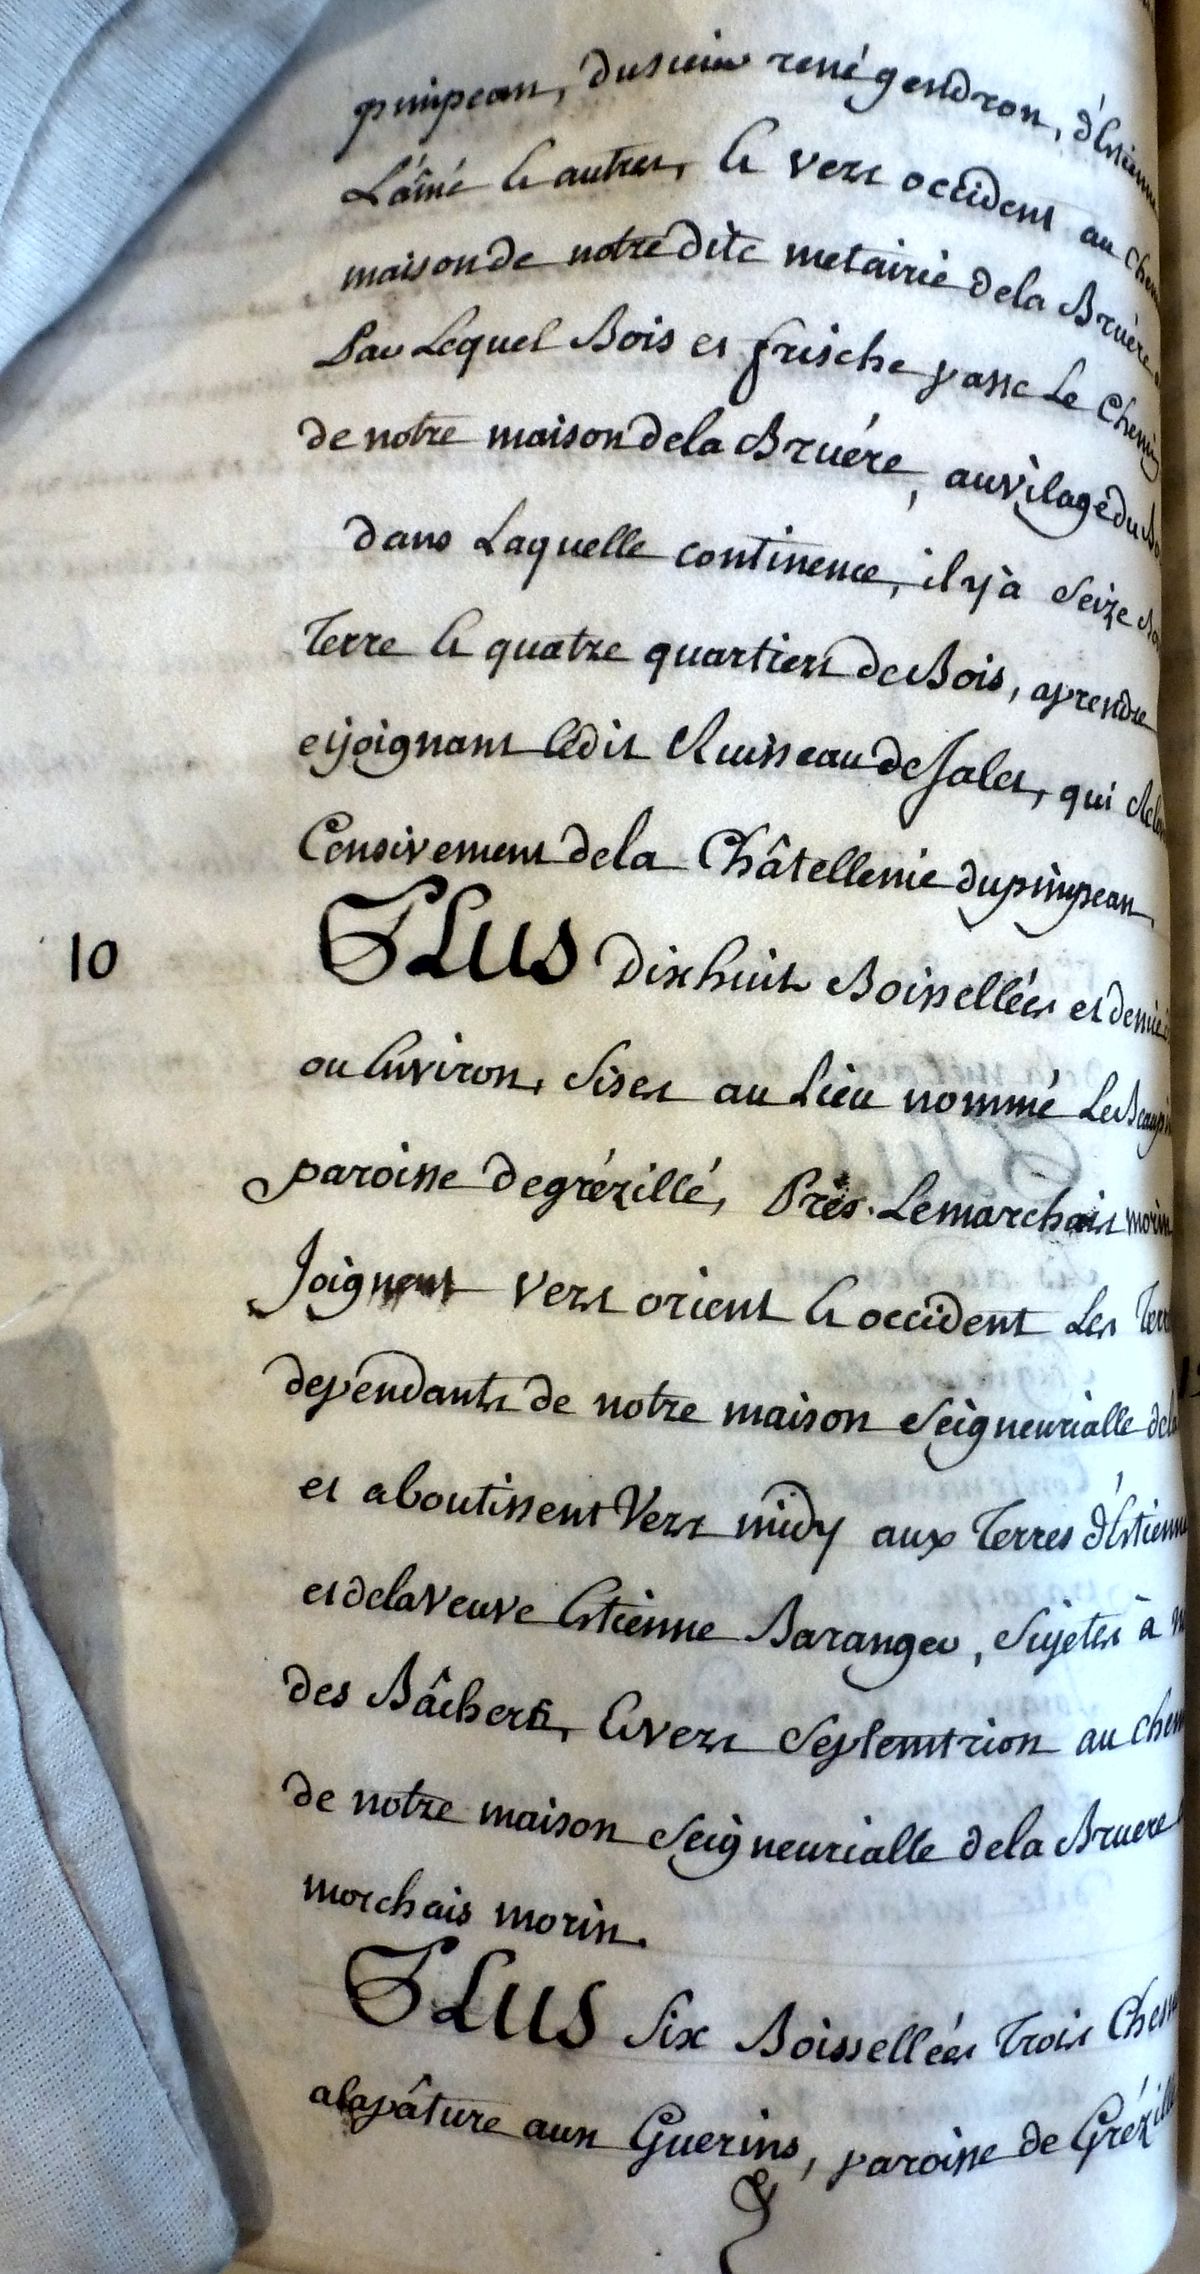 pimpean, du sieur rené gendron, d'Estienne
L'aîné & autres, & vers occident au chem
maison de notre dite metairie dela Bruère
Par Lequel Bois et frische passe Le Chemin
de notre maison dela Bruére, au vilage du Bo
dans Laquelle continence, il y à Seize Bo
Terre & quatre quartiers de Bois, aprendre
ejoignant ledit Ruisseau de Jalet, qui Relev
Censivement dela Châtellenie du pimpean.
10 PLUS Dixhuit Boissellées et demie d
ou Environ, Sises au Lieu nommé Le Beaupi
paroisse de grézillé, Près Le marchais morin
Joignent vers orient & occident Les Terr
dependants de notre maison Seigneurialle dela
et aboutissent Vers midy aux Terres d'Estienne
et dela Veuve Estienne Baranger, Sujetes à m
des Bâchers, & vers Septemtrion au chem
de notre maison Seigneurialle dela Bruere
morchais morin.
PLUS Six Boissellées Trois Ches
alapâture aux Guerins, paroisse de Grézillé